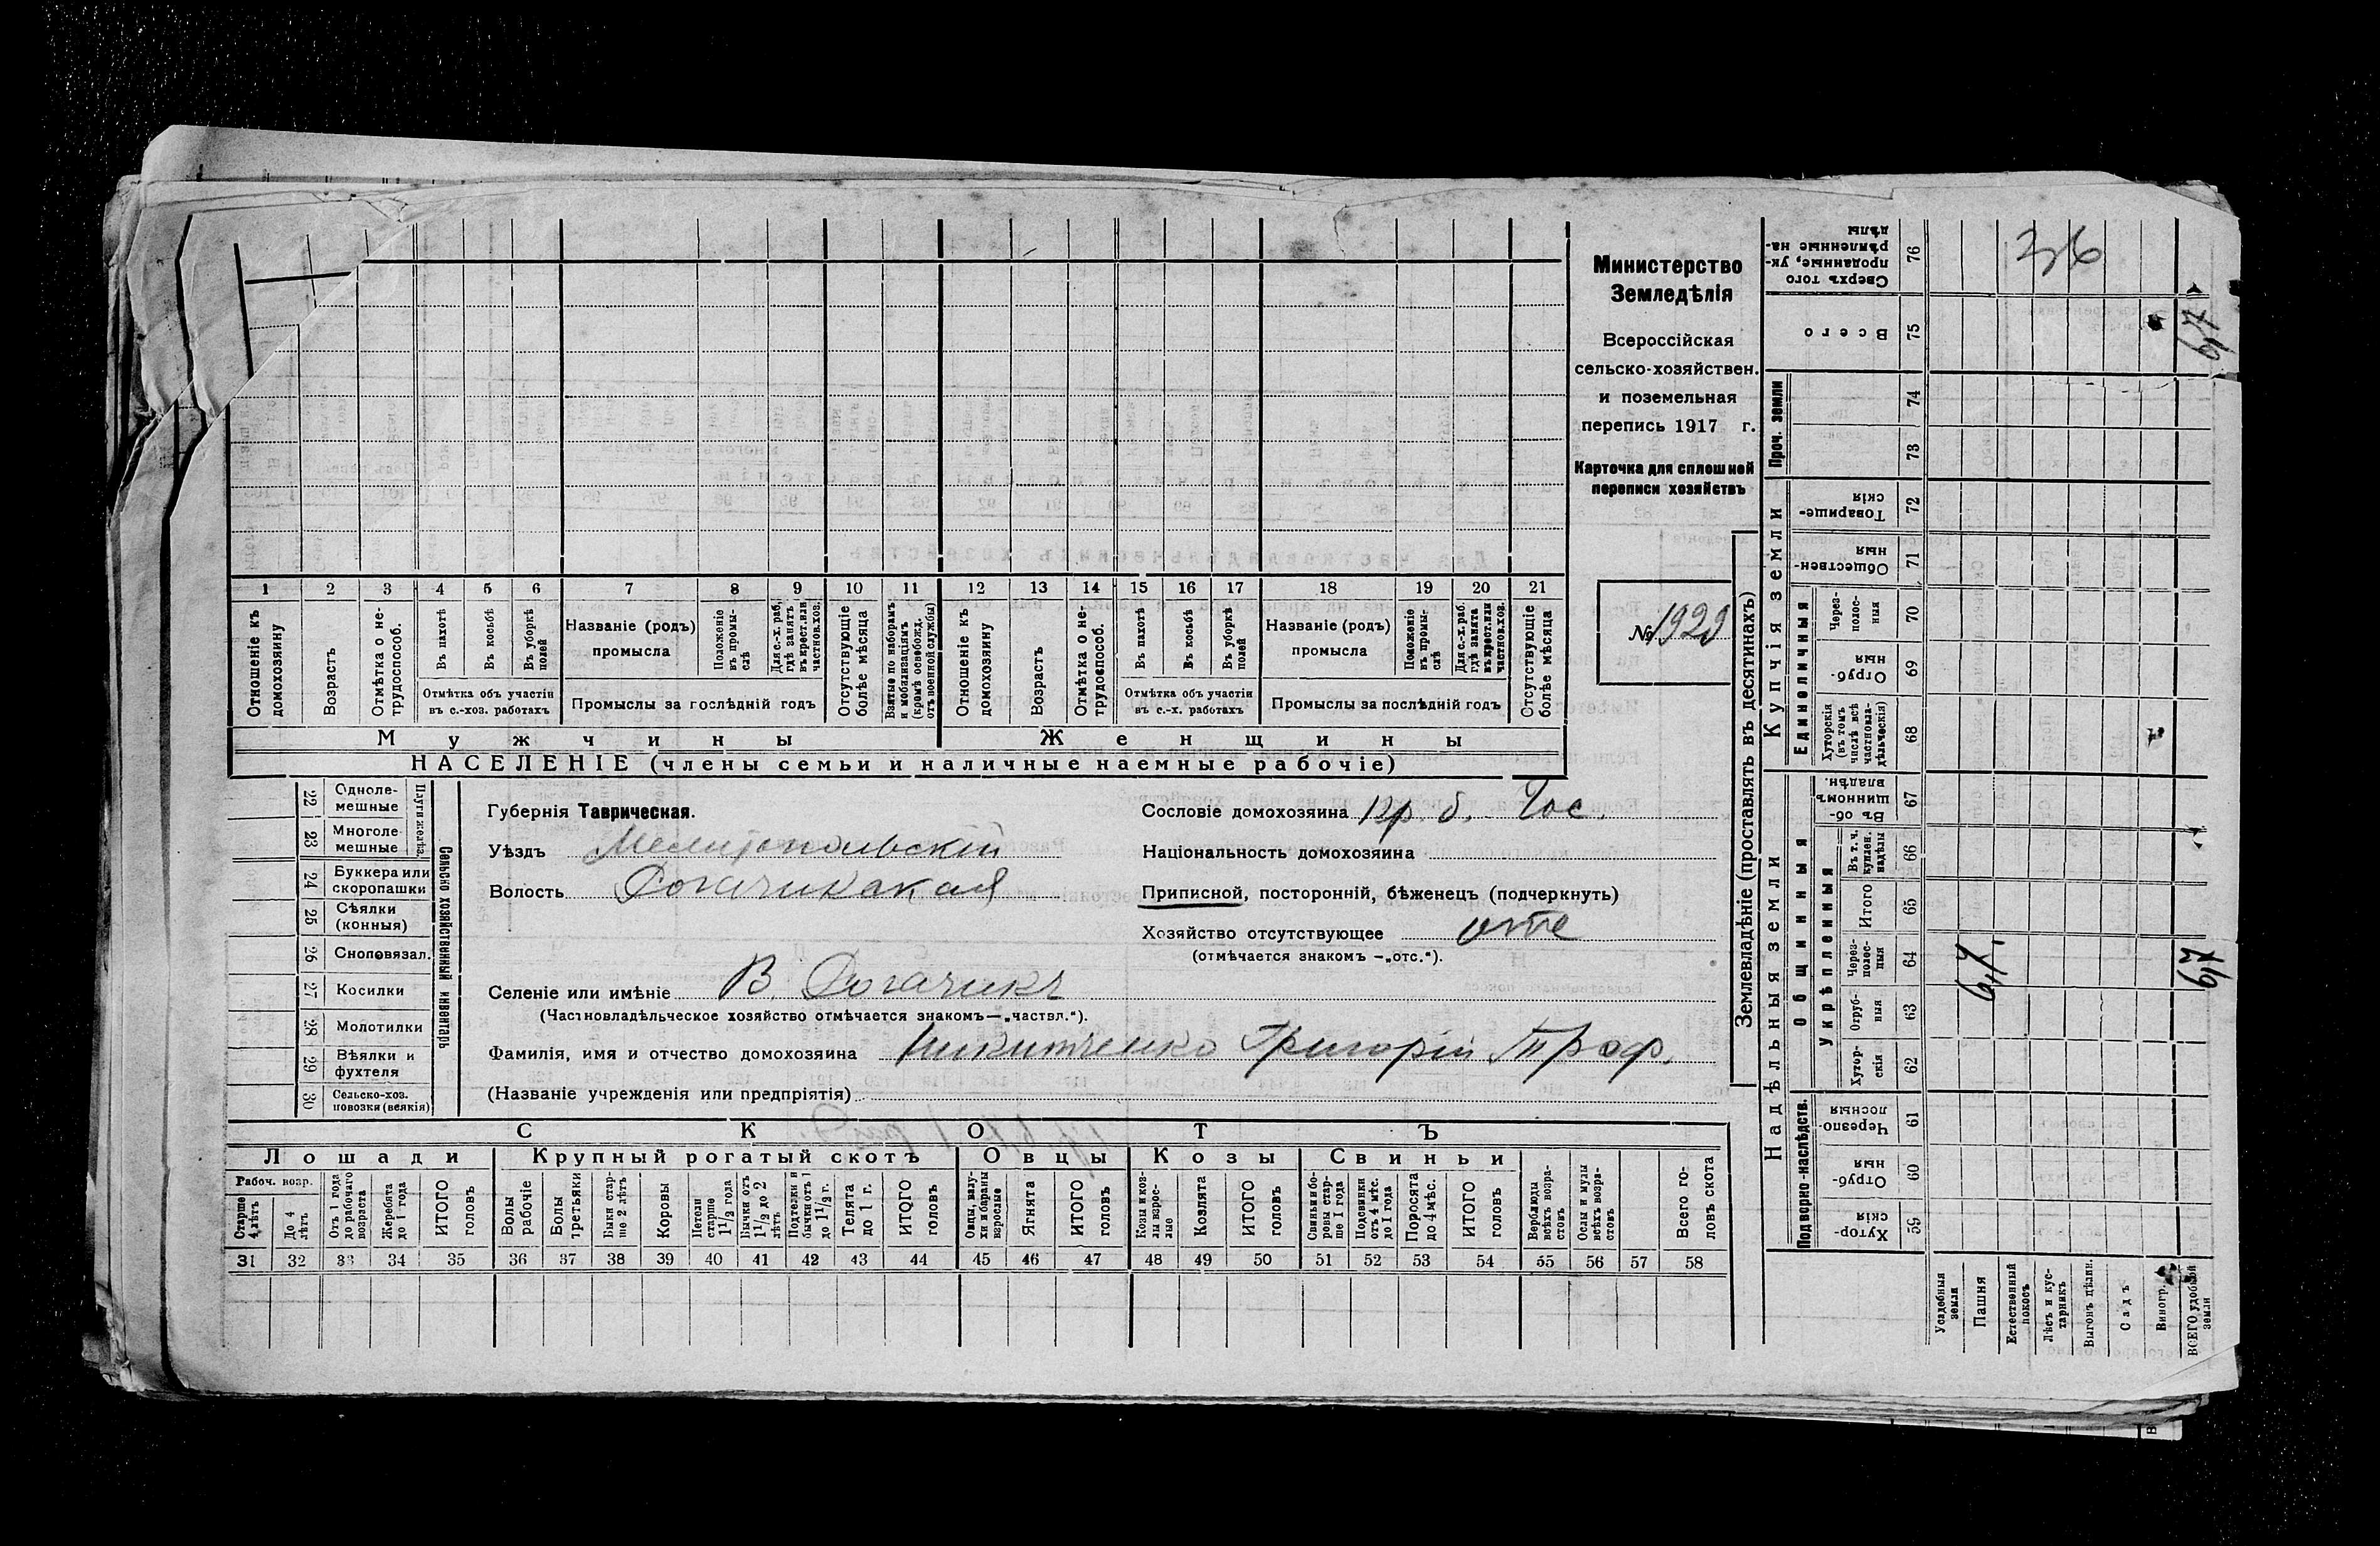 Министерство
Земледѣлія
Всероссійская
сельско-хозяйствен.
и поземельная
перепись 1917 г.
Карточка для сплошной
переписи хозяйствъ
№ 1929
1 2 3 4 5 6 7 8 9 10 11 12 13 14 15 16 17 18 19 20 21
Отношеніе къ домохозяину
Возрастъ
Отмѣтка о не-трудоспособ.
Въ пахотѣ
Въ косьбѣ
Въ уборкѣ полей
Отмѣтка объ участіи въ с.-хоз. работахъ
Названіе (родъ) промысла
Положеніе въ промы-слѣ
Для с.-х. раб. гдѣ занятъ въ крест. или частнов. хоз.
Промыслы за послѣдній годъ
Отсутствующіе болѣе мѣсяца
Взятые по наборамъ и мобилизаціямъ (кромѣ освобожд. отъ военной службы)
Отношеніе къ домохозяину
Возрастъ
Отмѣтка о не-трудоспособ.
Въ пахотѣ
Въ косьбѣ
Въ уборкѣ полей
Отмѣтка объ участіи въ с.-х. работахъ
Названіе (родъ) промысла
Положеніе въ промы-слѣ
Для с.-х. раб. гдѣ занята въ крест. или частнов. хоз.
Промыслы за послѣдній годъ
Отсутствующіе болѣе мѣсяца
Мужчины
Женщины
НАСЕЛЕНІЕ (члены семьи и наличные наемные рабочіе)
Сельско хозяйственный инвентарь
Плуги желѣз.
22 Одноле-мешные
23 Многоле мешные
24 Буккера или скоропашки
25 Сѣялки (конныя)
26 Сноповязал.
27 Косилки
28 Молотилки
29 Вѣялки и фухтеля
30 Сельско-хоз. повозки (всякія)
Губернія Таврическая.
Уѣздъ Мелитопольскій
Волость Рогачикская
Селеніе или имѣніе В. Рогачикъ
(Частновладѣльческое хозяйство отмѣчается знакомъ—„частвл.“).
Фамилія, имя и отчество домохозяина Никитченко Григорій Троф.
(Названіе учрежденія или предпріятія)
Сословіе домохозяина кр. б. Гос.
Національность домохозяина
Приписной, посторонній, бѣженецъ (подчеркнуть)
Хозяйство отсутствующее отс
(отмѣчается знакомъ —„отс.“).
СКОТЪ
Лошади
Крупный рогатый скотъ
Овцы
Козы
Свиньи
Рабоч. возр.
Старше 4 лѣтъ
До 4 лѣтъ
Отъ 1 года до рабочаго возраста
Жеребята до 1 года
ИТОГО головъ
Волы рабочіе
Волы третьяки
Быки стар-ше 2 лѣтъ
Коровы
Нетели старше 1½ года
Бычки отъ 1½ до 2 лѣтъ
Подтелки и бычки отъ 1 до 1½ г.
Телята до 1 г.
ИТОГО головъ
Овцы, валу-хи и бараны взрослые
Ягнята
ИТОГО головъ
Козы и коз-лы взрос-лые
Козлята
ИТОГО головъ
Свиньи и бо-ровы стар-ше 1 года
Подсвинки отъ 4 мѣс. до 1 года
Поросята до 4 мѣс.
ИТОГО головъ
Верблюды всѣхъ возра-стовъ
Ослы и мулы всѣхъ возра-стовъ
Всего го-ловъ скота
31 32 33 34 35 36 37 38 39 40 41 42 43 44 45 46 47 48 49 50 51 52 53 54 55 56 57 58
Землевладѣніе (проставлять въ десятинахъ)
Надѣльныя земли
Купчія земли
Проч. земли
Подворно-наслѣдств.
Общинныя
Укрѣпленныя
Единоличныя
76 Сверхъ того проданные, ук-рѣпленные на-дѣлы
75 Всего
74
73
72 Товарище-скія
71 Обществен-ныя
70 Через-полос-ныя
69 Отруб-ныя
68 Хуторскія (въ томъ числѣ всѣ частновла-дѣльческія)
67 Въ об-щинномъ владѣн.
66 Въ т. ч. куплен. надѣлы
65 Итого
64 Через-полос-ныя
63 Отруб-ныя
62 Хутор-скія
61 Черезпо-лосныя
60 Отруб-ныя
59 Хутор-скія
36
6,7
6,7.
6,7
Усадебныя земля
Пашня
Естественный покосъ
Лѣсъ и кус-тарникъ
Выгонъ цѣлин.
Садъ
Виногр.
ВСЕГО удобной земли